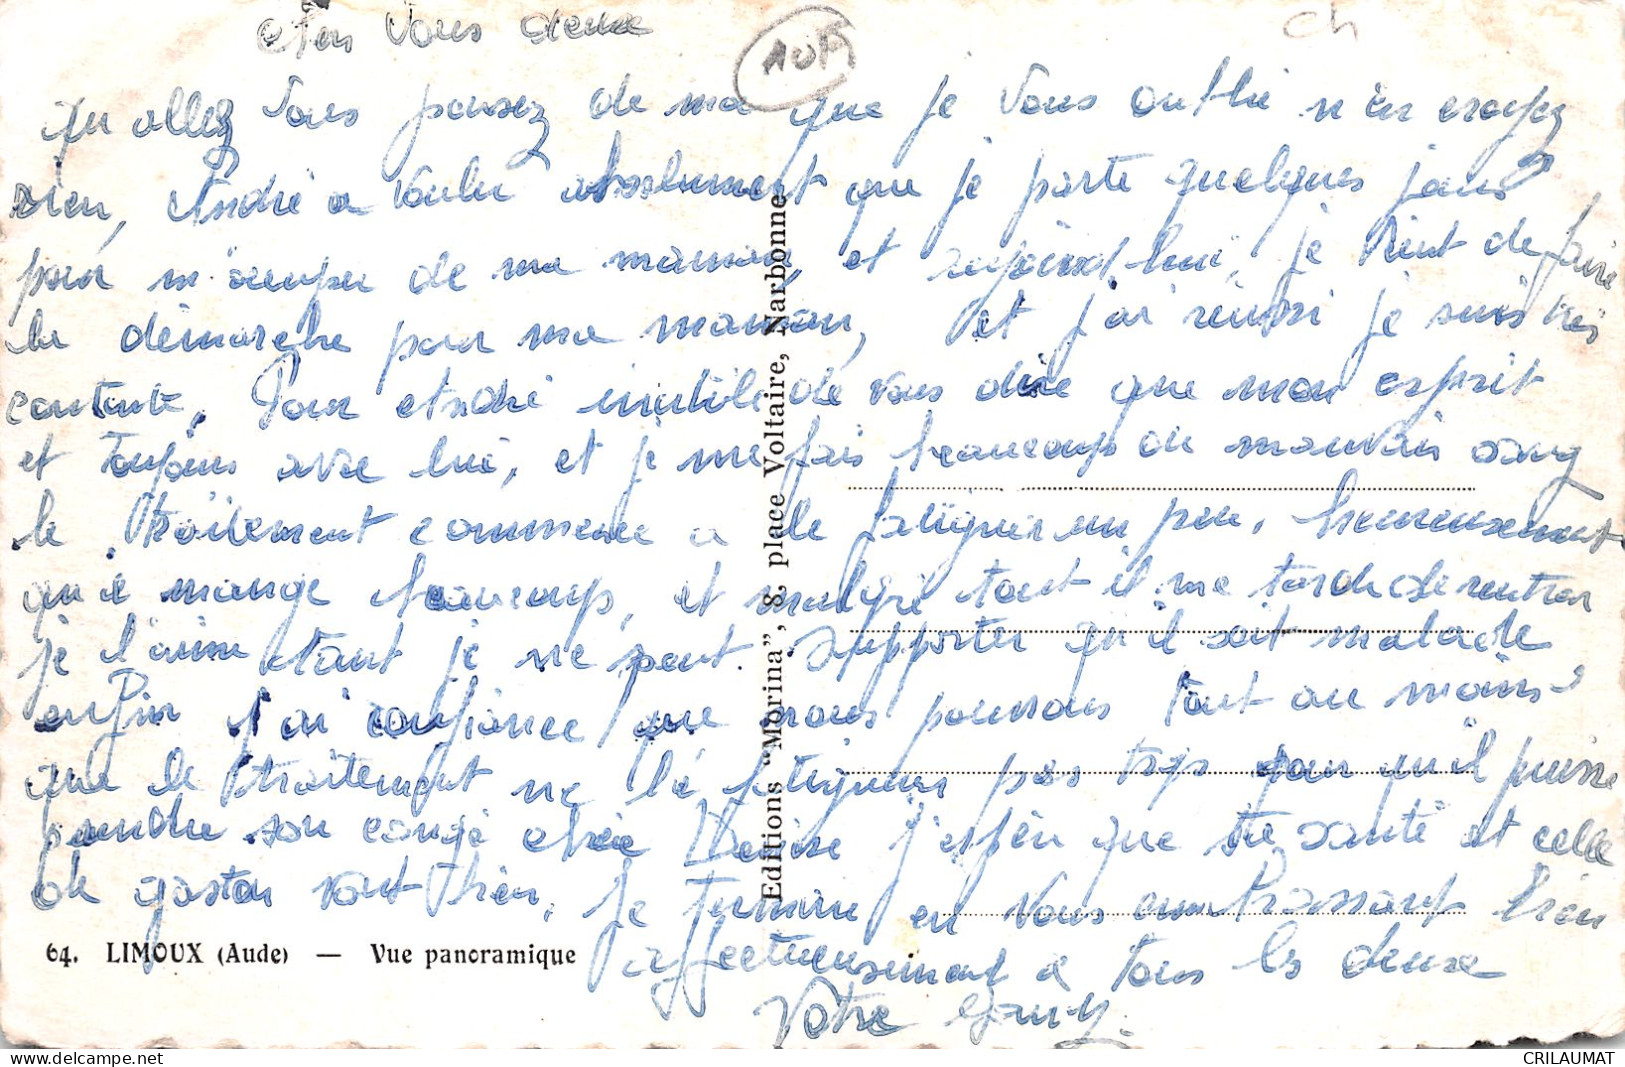 Chers vous deux
AUD
Ch
Qu allez vous pensez de moi que je vous oublie n'en croyez
rien, André a voulu absolument que je parte quelques jours
pour m'occuper de ma maman, et aujourd'hui, je vient de faire
la démarche pour ma maman, et j'ai réussi je suis très
contente, Pour André inutile de vous dire que mon esprit
et toujours avec lui, et je me fais beaucoup du mauvais sang
le traitement commence a le fatiguer un peu, heureusement
qu'il mange beaucoup, et malgré tout il me tarde de rentrer
je l'aime tant je ne peut supporter qu'il soit malade
enfin j'ai confiance que nous pourrons tout au moins
que le traitement ne le fatiguera pas trop pour qu'il puisse
prendre son congé chère Denise j'espère que ta santé et celle
de gaston vont bien, je termine en vous embrassant bien
affectueusement a tous les deux
Votre
Editions "Morina", 8, place Voltaire, Narbonne
64. LIMOUX (Aude) — Vue panoramique
CRILAUMAT